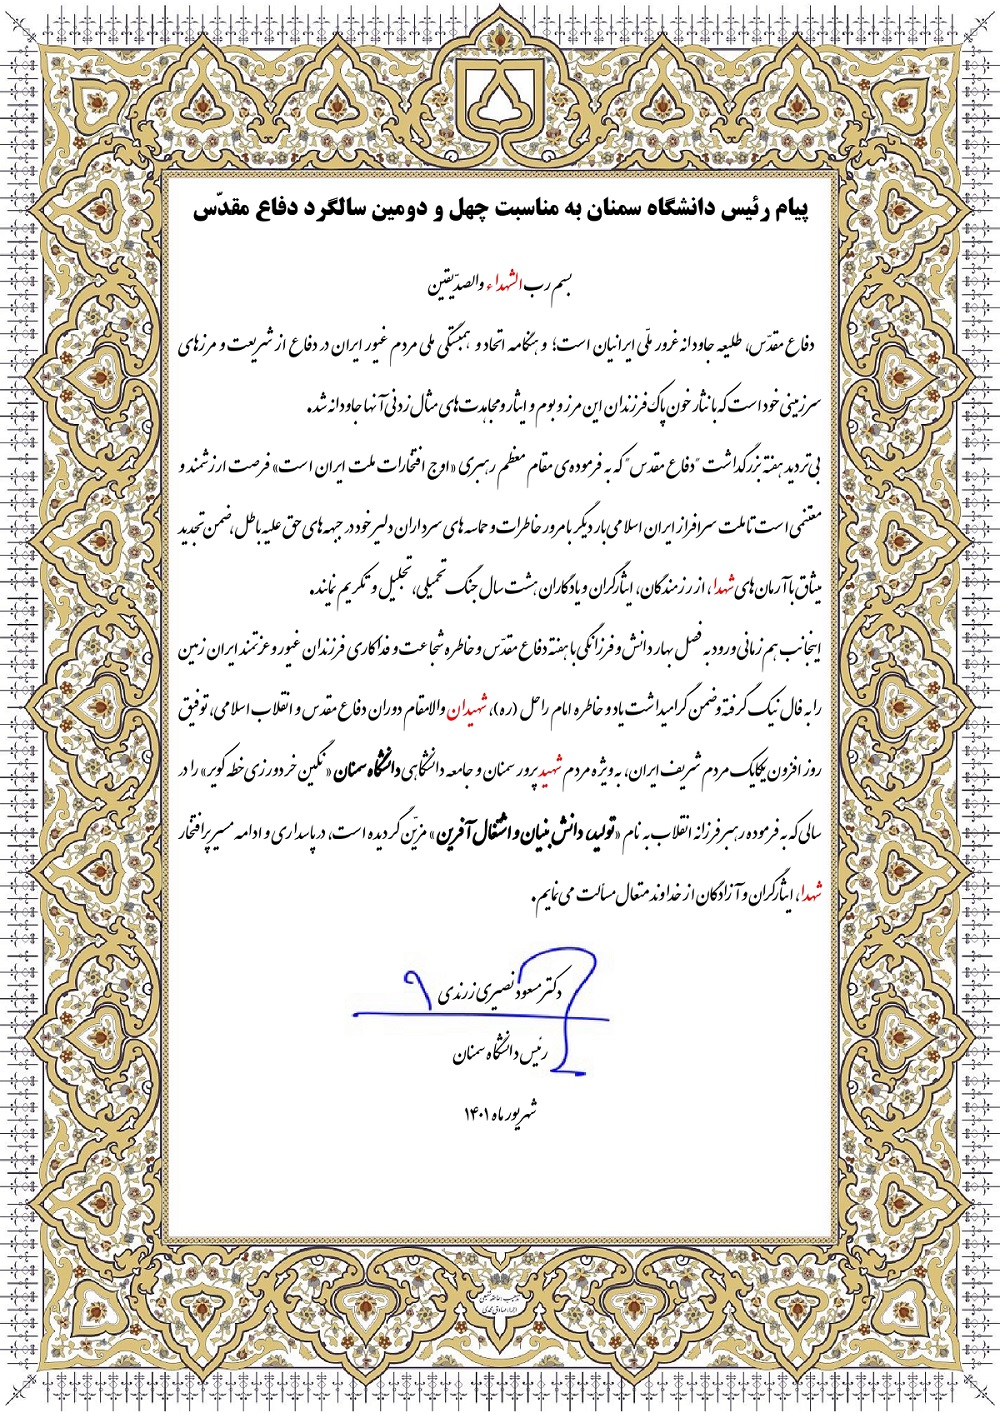 پیام رئیس دانشگاه سمنان به مناسبت چهل و دومین سالگرد دفاع مقدّس
بسم رب الشهداء والصدّیقین
دفاع مقدّس، طلیعه جاودانه غرور ملّی ایرانیان است؛ و هنگامه اتحاد و همبستگی ملی مردم غیور ایران در دفاع از شریعت و مرزهای
سرزمینی خود است که با نثار خون پاک فرزندان این مرز و بوم و ایثار و مجاهدت‌های مثال زدنی آنها جاودانه شد.
بی‌تردید هفته بزرگداشت "دفاع مقدس" که به فرموده‌ی مقام معظم رهبری «اوج افتخارات ملت ایران است» فرصت ارزشمند و
مغتنمی است تا ملت سرافراز ایران اسلامی بار دیگر با مرور خاطرات و حماسه های سرداران دلیر خود در جبهه های حق علیه باطل، ضمن تجدید
میثاق با آرمان های شهدا، از رزمندگان، ایثارگران و یادگاران هشت سال جنگ تحمیلی، تجلیل و تکریم نمایند.
اینجانب هم زمانی ورود به فصل بهار دانش و فرزانگی با هفته دفاع مقدّس و خاطره شجاعت و فداکاری فرزندان غیور و عزتمند ایران زمین
را به فال نیک گرفته و ضمن گرامیداشت یاد و خاطره امام راحل (ره)، شهیدان والامقام دوران دفاع مقدس و انقلاب اسلامی، توفیق
روز افزون یکایک مردم شریف ایران، به ویژه مردم شهید پرور سمنان و جامعه دانشگاهی دانشگاه سمنان «نگین خردورزی خطه کویر» را در
سالی که به فرموده رهبر فرزانه انقلاب به نام «تولید، دانش بنیان و اشتغال آفرین» مزیّن گردیده است، در پاسداری و ادامه مسیر پرافتخار
شهدا، ایثارگران و آزادگان از خداوند متعال مسألت می‌نمایم.
دکتر مسعود نصیری زرندی
رئیس دانشگاه سمنان
شهریور ماه ۱۴۰۱